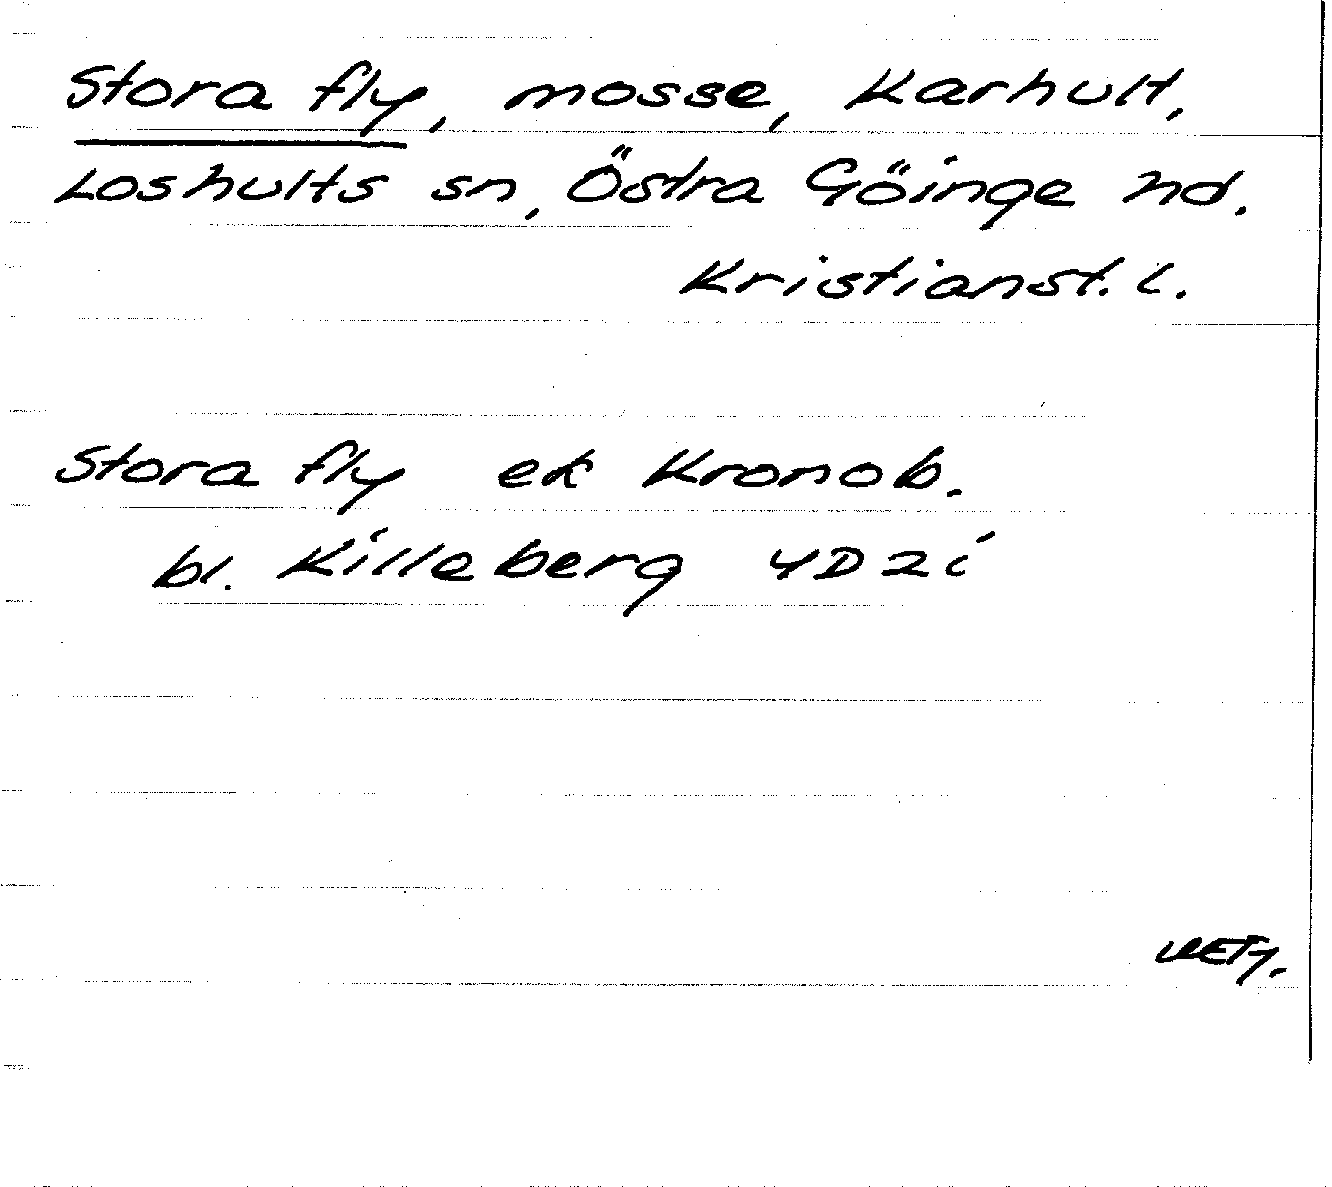 Stora fly, mosse, Karhult,
Loshults sn, Östra Göinge hd.
Kristianst. l.
Stora fly ek Kronob.
bl. Killeberg 4D2i